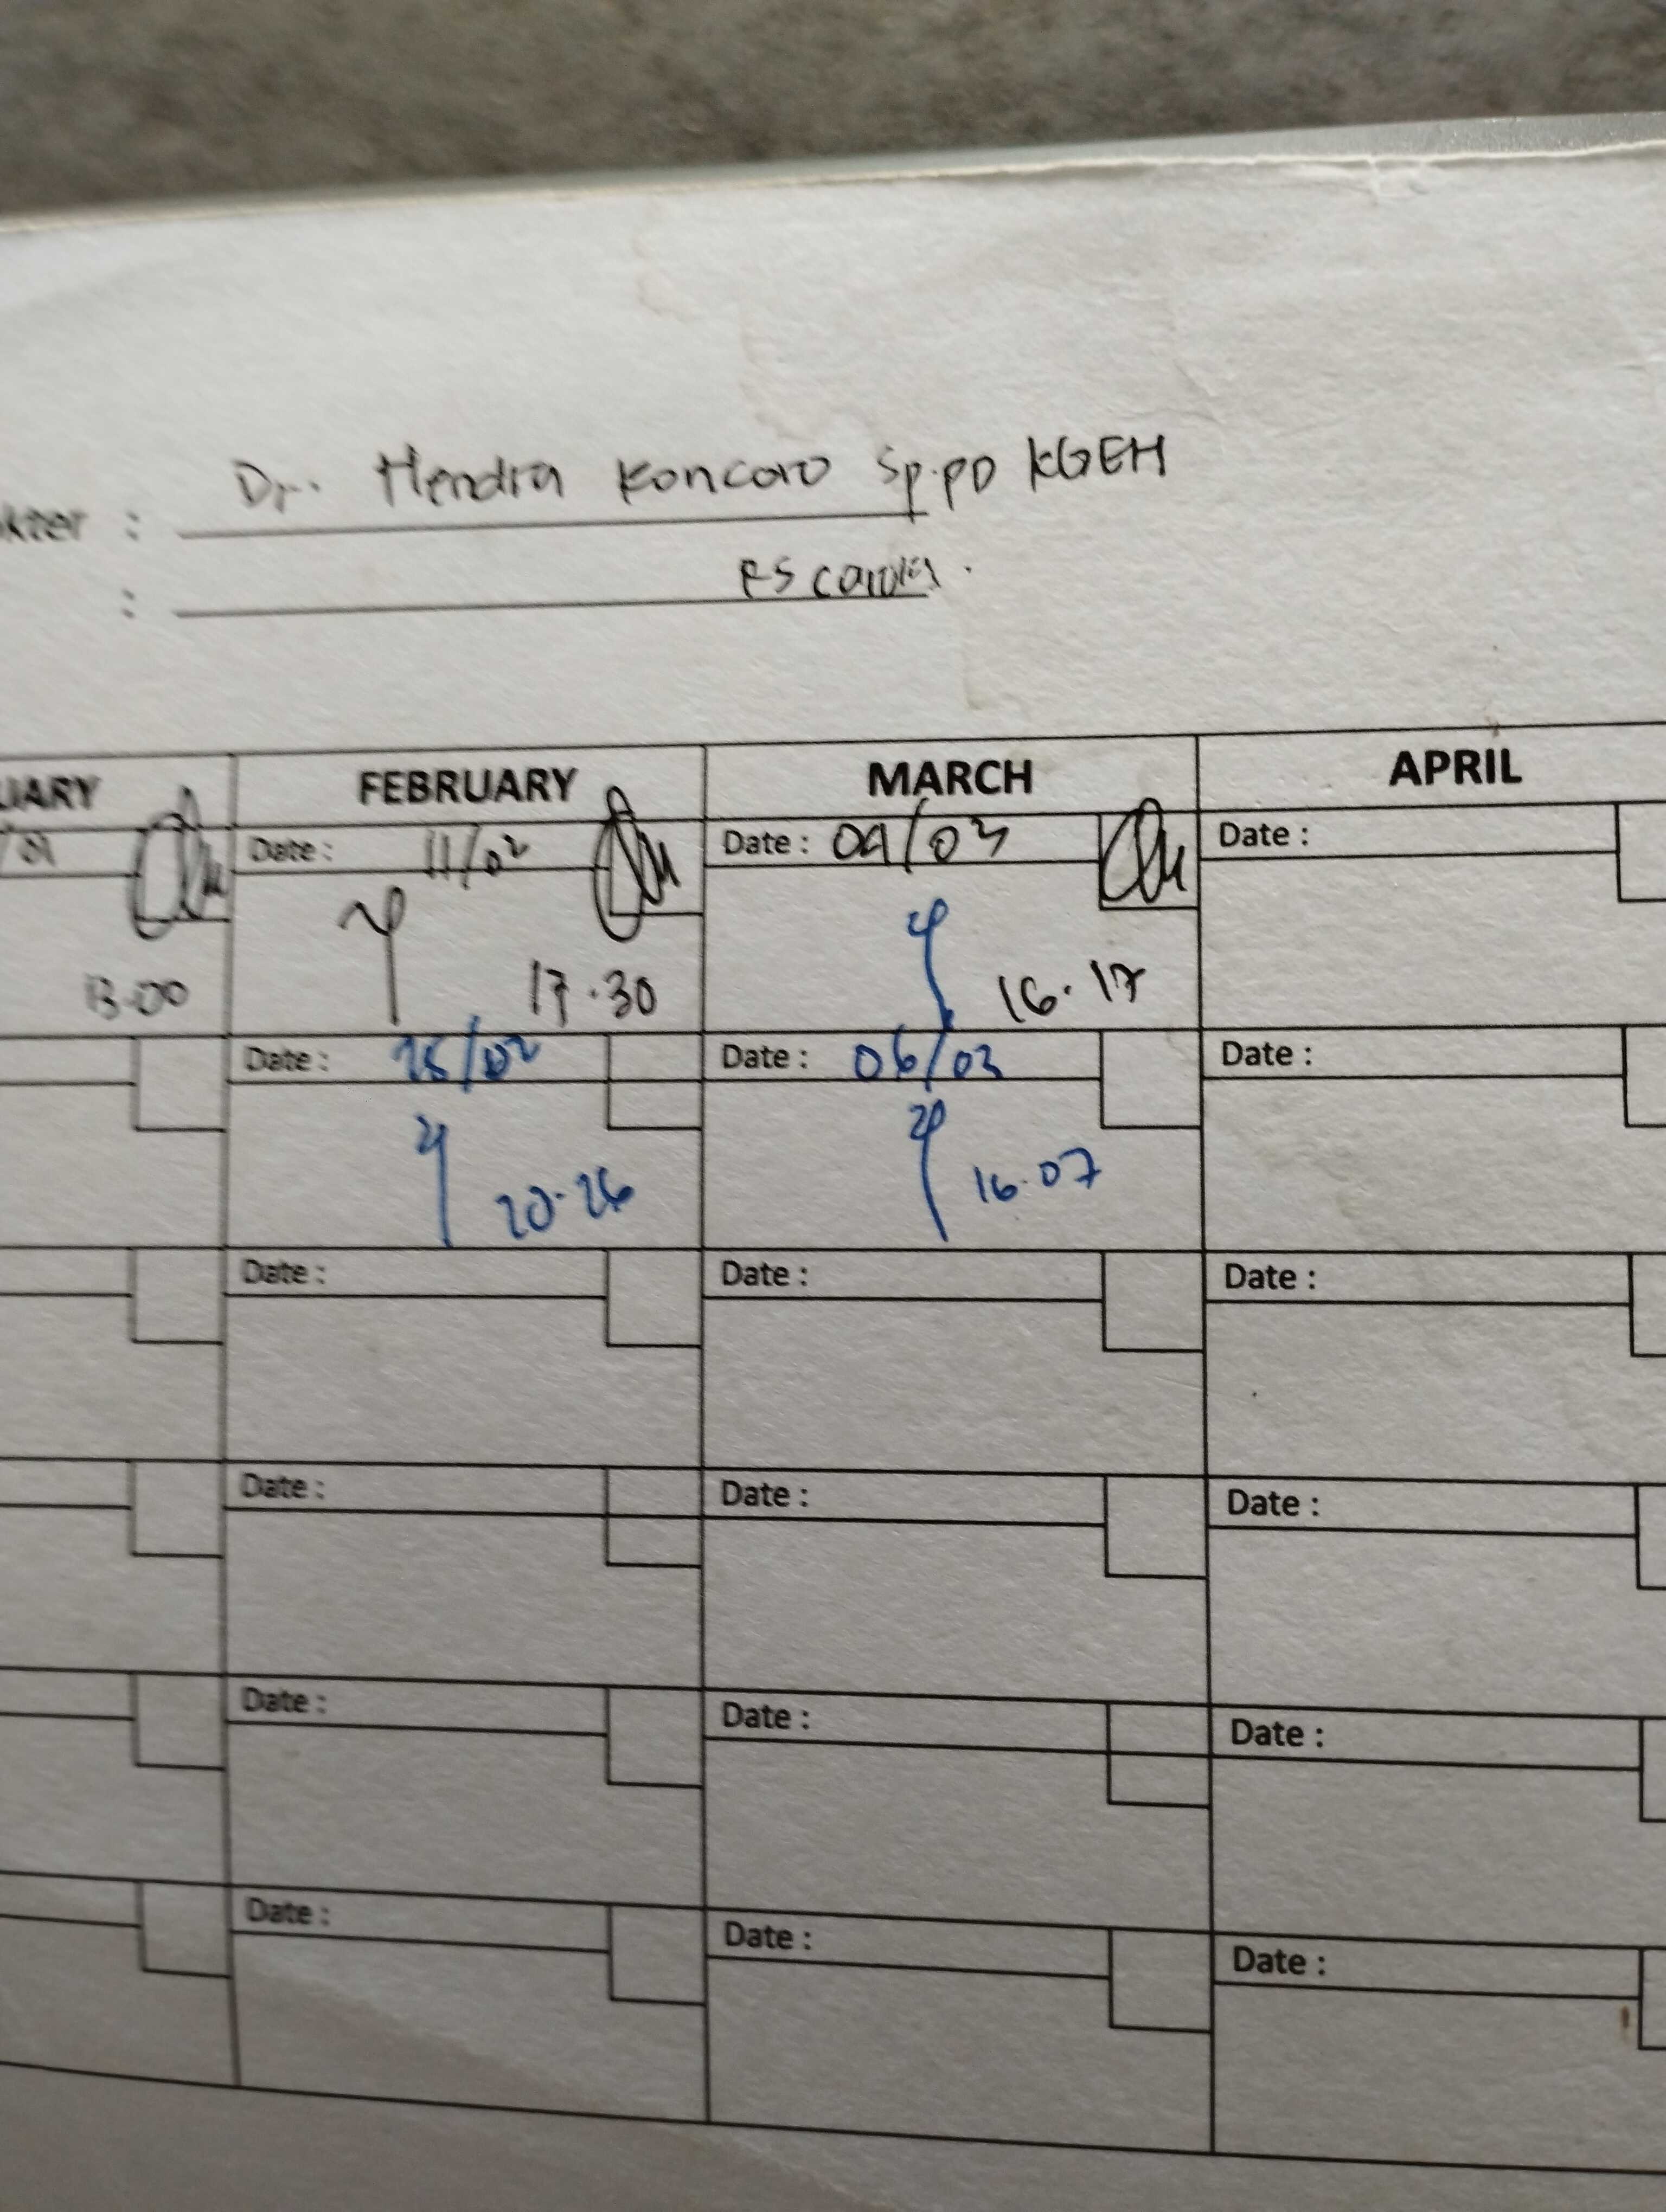 Dr. Hendra Koncoro Sp.PD KGEH
:
RS
:
FEBRUARY MARCH APRIL
Date : 11/02 Date : 09/03 Date :
13.00 17.30 16.17
Date : 25/02 Date : 06/03 Date :
20.26 16.07
Date : Date : Date :
Date : Date : Date :
Date : Date : Date :
Date : Date : Date :